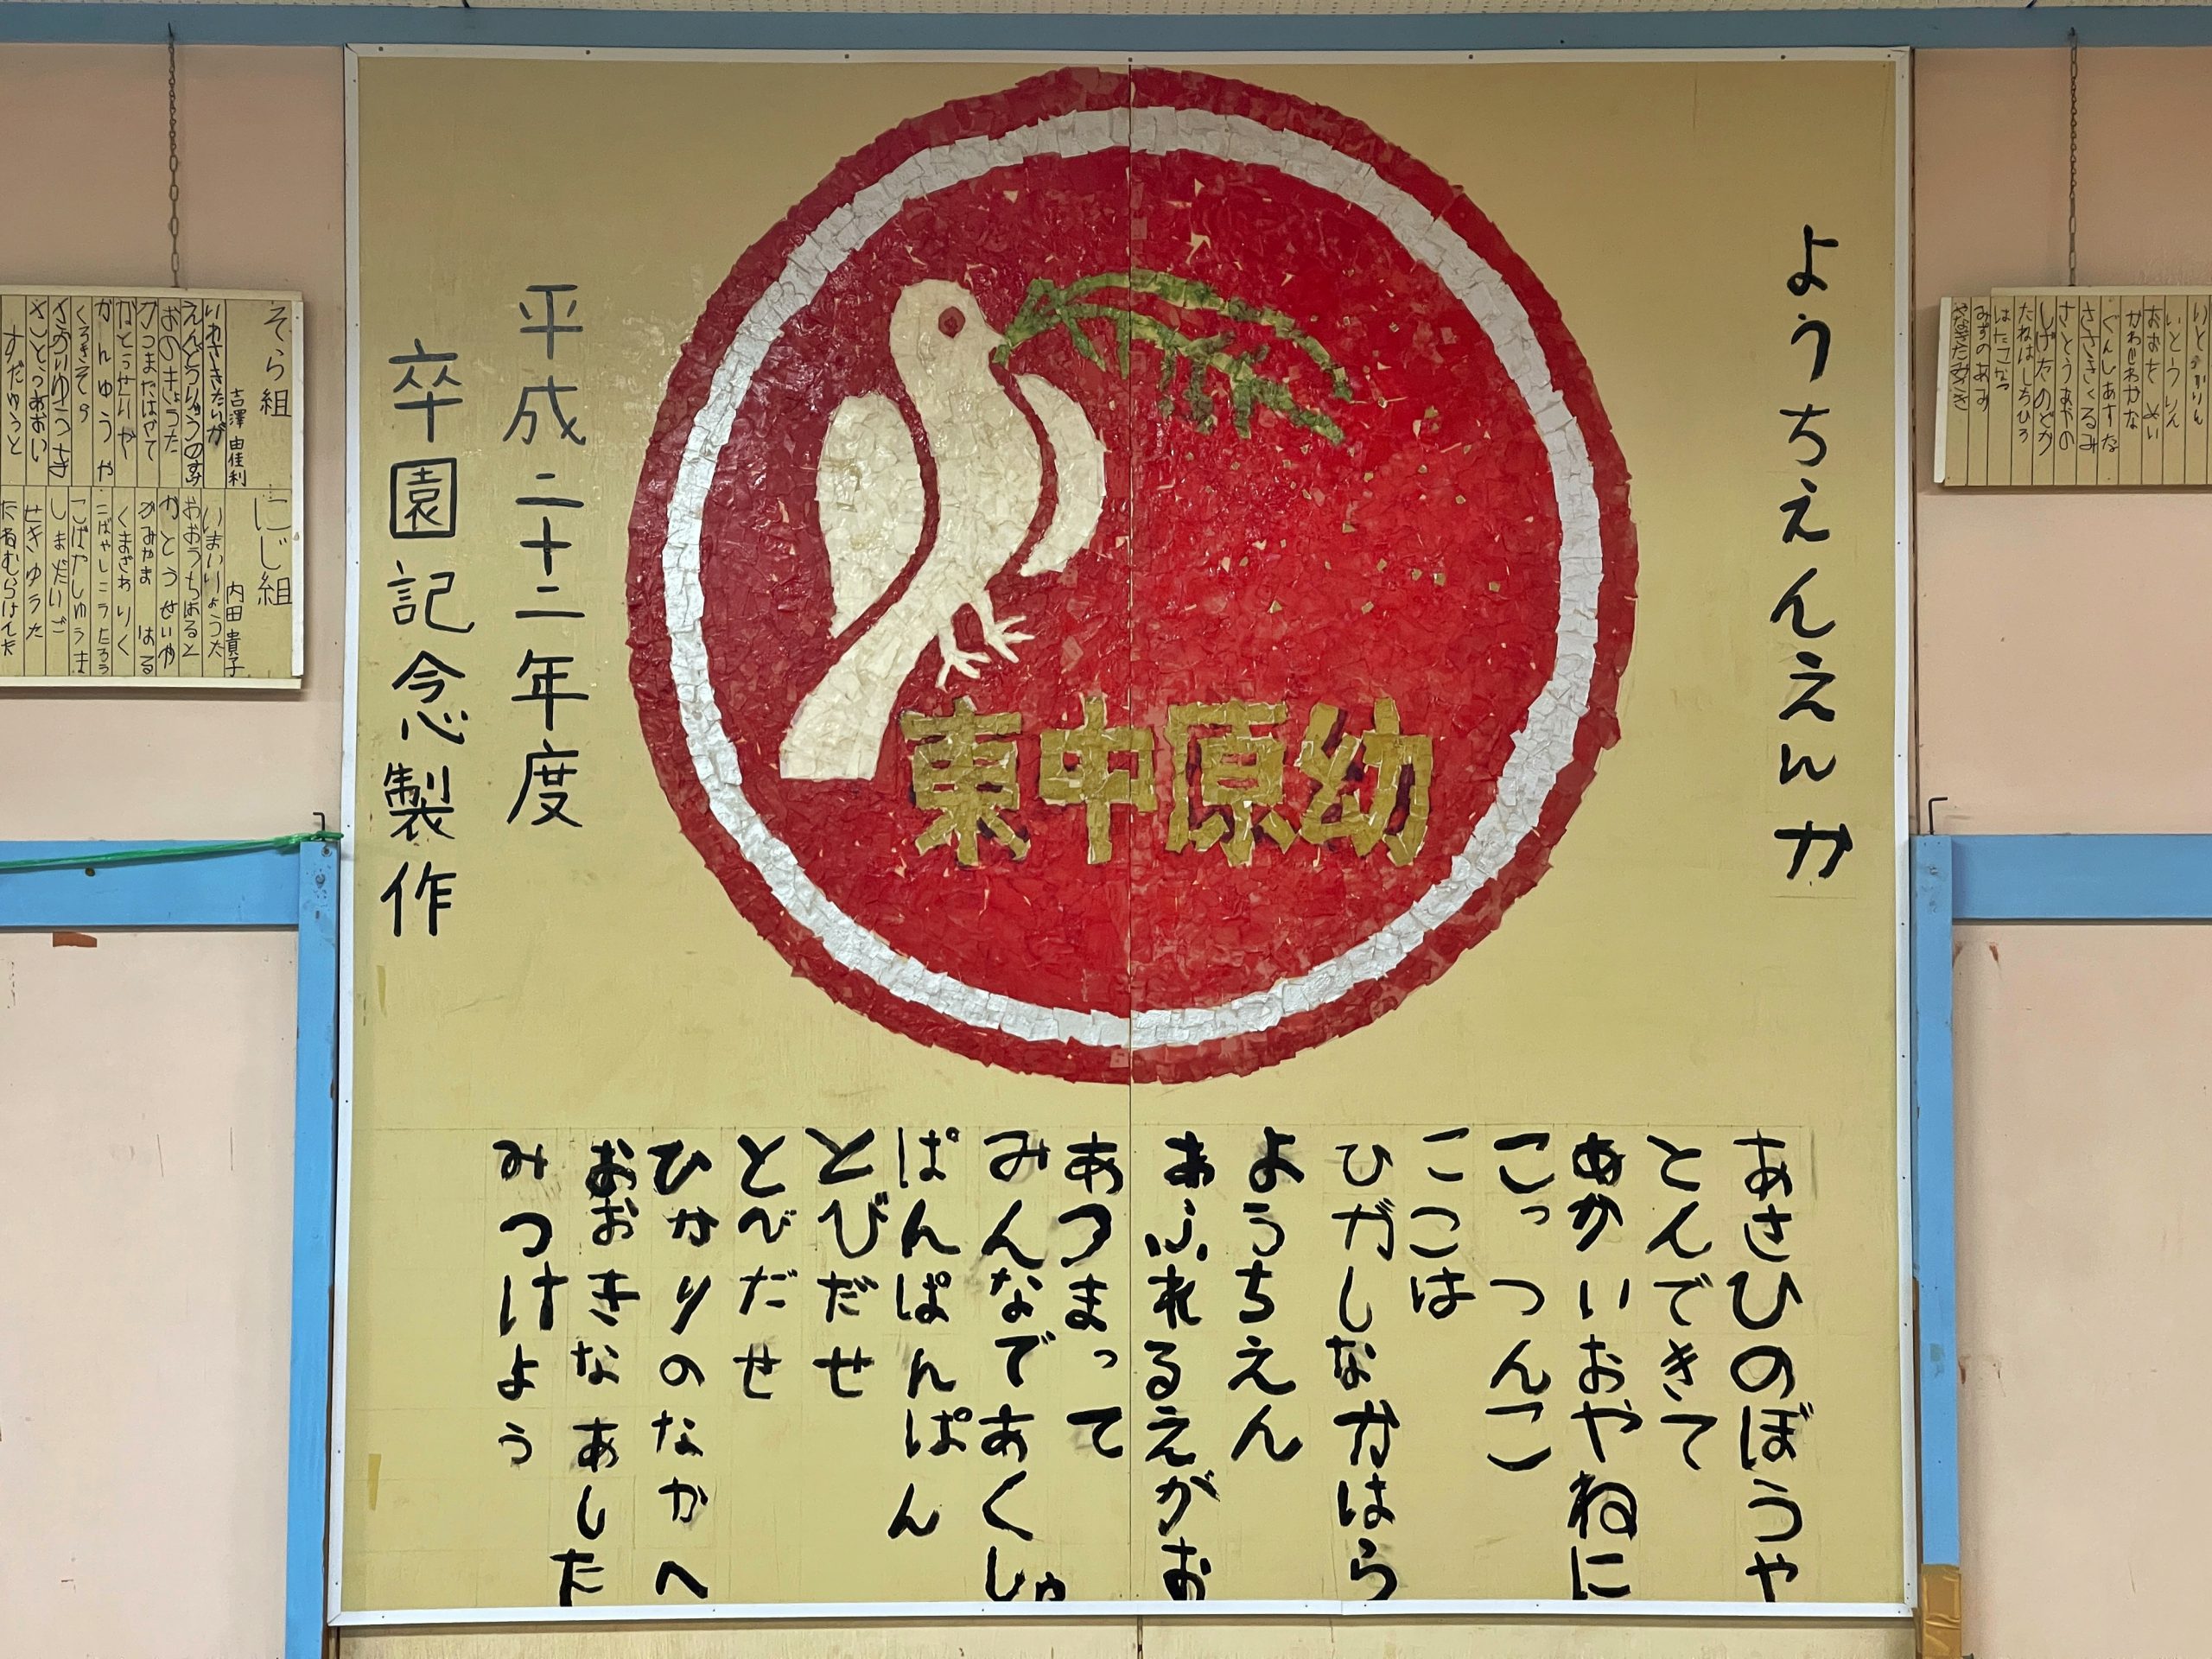 ようちえんえんか
東中原幼
平成二十二年度
卒園記念製作
あさひのぼうや
とんできて
あかいおやねに
こっつんこ
ここは
ひがしなかはら
ようちえん
あふれるえがお
あつまって
みんなであくしゅ
ぱんぱんぱん
とびだせ
とべだせ
ひかりのなかへ
おおきなあした
みつけよう
いとうりん
おおた めい
かわじわかな
ぐんしあすな
ささきくるみ
さとうあやの
しげたのどか
たねはしちひろ
はたこなつ
みずのあみ
やなぎたみさき
そら組
吉澤 由佳利
いわさきたいが
えんどうりゅうのすけ
おのきょうた
かつまたはやて
かとうせいや
かんゆうや
くろきその
さおりゆうき
さとうあおい
すだゆうと
にじ組
内田 貴子
いまいりょうた
おおうちはると
かとう せいや
かみやま はる
くまざわりく
こばやしこうたろう
こばやししゅうま
しまだいご
せきゆうた
たねむらけんた